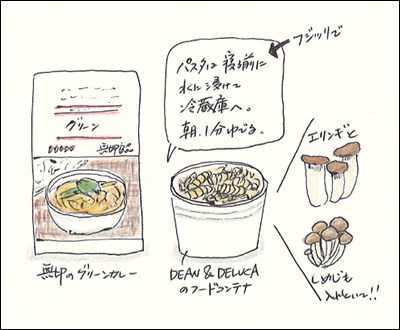 フジッリで
パスタは寝る前に
水に浸けて
冷蔵庫へ。
朝、1分ゆでる。
グリーン
無印良品
エリンギと
しめじも
入れといて!!
無印のグリーンカレー
DEAN & DELUCA
のフードコンテナ